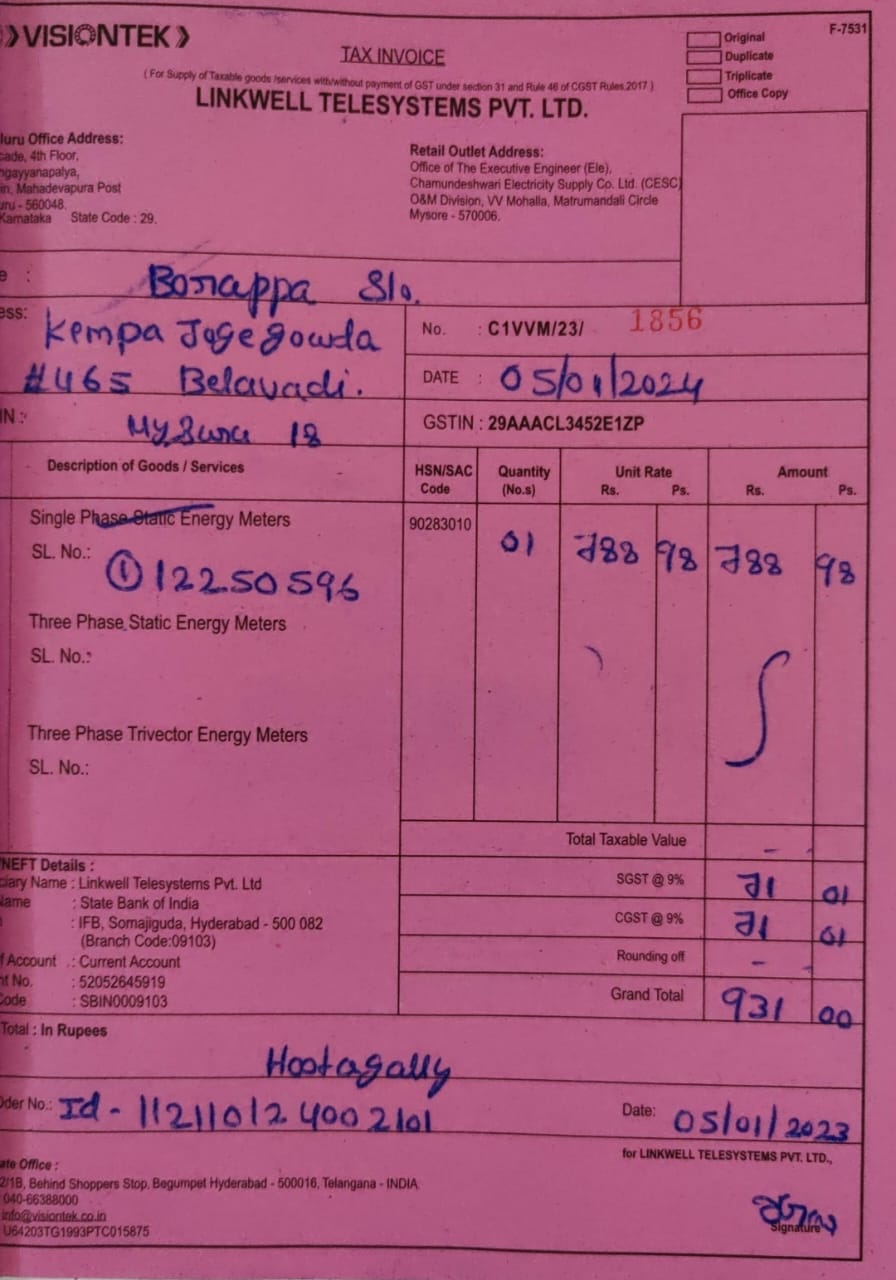 VISIONTEK
F-7531
TAX INVOICE
Original
Duplicate
Triplicate
Office Copy
( For Supply of Taxable goods /services with/without payment of GST under section 31 and Rule 46 of CGST Rules.2017 )
LINKWELL TELESYSTEMS PVT. LTD.
luru Office Address:
cade, 4th Floor,
ngayyanapalya,
in, Mahadevapura Post
uru - 560048.
Karnataka State Code : 29.
Retail Outlet Address:
Office of The Executive Engineer (Ele),
Chamundeshwari Electricity Supply Co. Ltd. (CESC)
O&M Division, VV Mohalla, Matrumandali Circle
Mysore - 570006.
e : Borappa S/o.
ess: Kempa Jogegowda
#465 Belavadi.
IN : Mysuru 18
No. : C1VVM/23/ 1856
DATE : 05/01/2024
GSTIN : 29AAACL3452E1ZP
Description of Goods / Services HSN/SAC Code Quantity (No.s) Unit Rate Rs. Ps. Amount Rs. Ps.
Single Phase Static Energy Meters 90283010 01 788 98 788 98
SL. No.:
① 12250596
Three Phase Static Energy Meters
SL. No.:
Three Phase Trivector Energy Meters
SL. No.:
Total Taxable Value -
SGST @ 9% 71 01
CGST @ 9% 71 01
Rounding off -
Grand Total 931 00
NEFT Details :
ciary Name : Linkwell Telesystems Pvt. Ltd
Name : State Bank of India
: IFB, Somajiguda, Hyderabad - 500 082
(Branch Code:09103)
f Account .: Current Account
nt No. : 52052645919
Code : SBIN0009103
Total : In Rupees
Hootagally
Oder No.: Id - 112110124002101
Date: 05/01/2023
for LINKWELL TELESYSTEMS PVT. LTD.,
ate Office :
2/1B, Behind Shoppers Stop, Begumpet Hyderabad - 500016, Telangana - INDIA
040-66388000
info@visiontek.co.in
U64203TG1993PTC015875
Signature